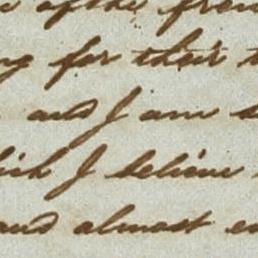 of the fren
for their
and I am
I believe
and almost